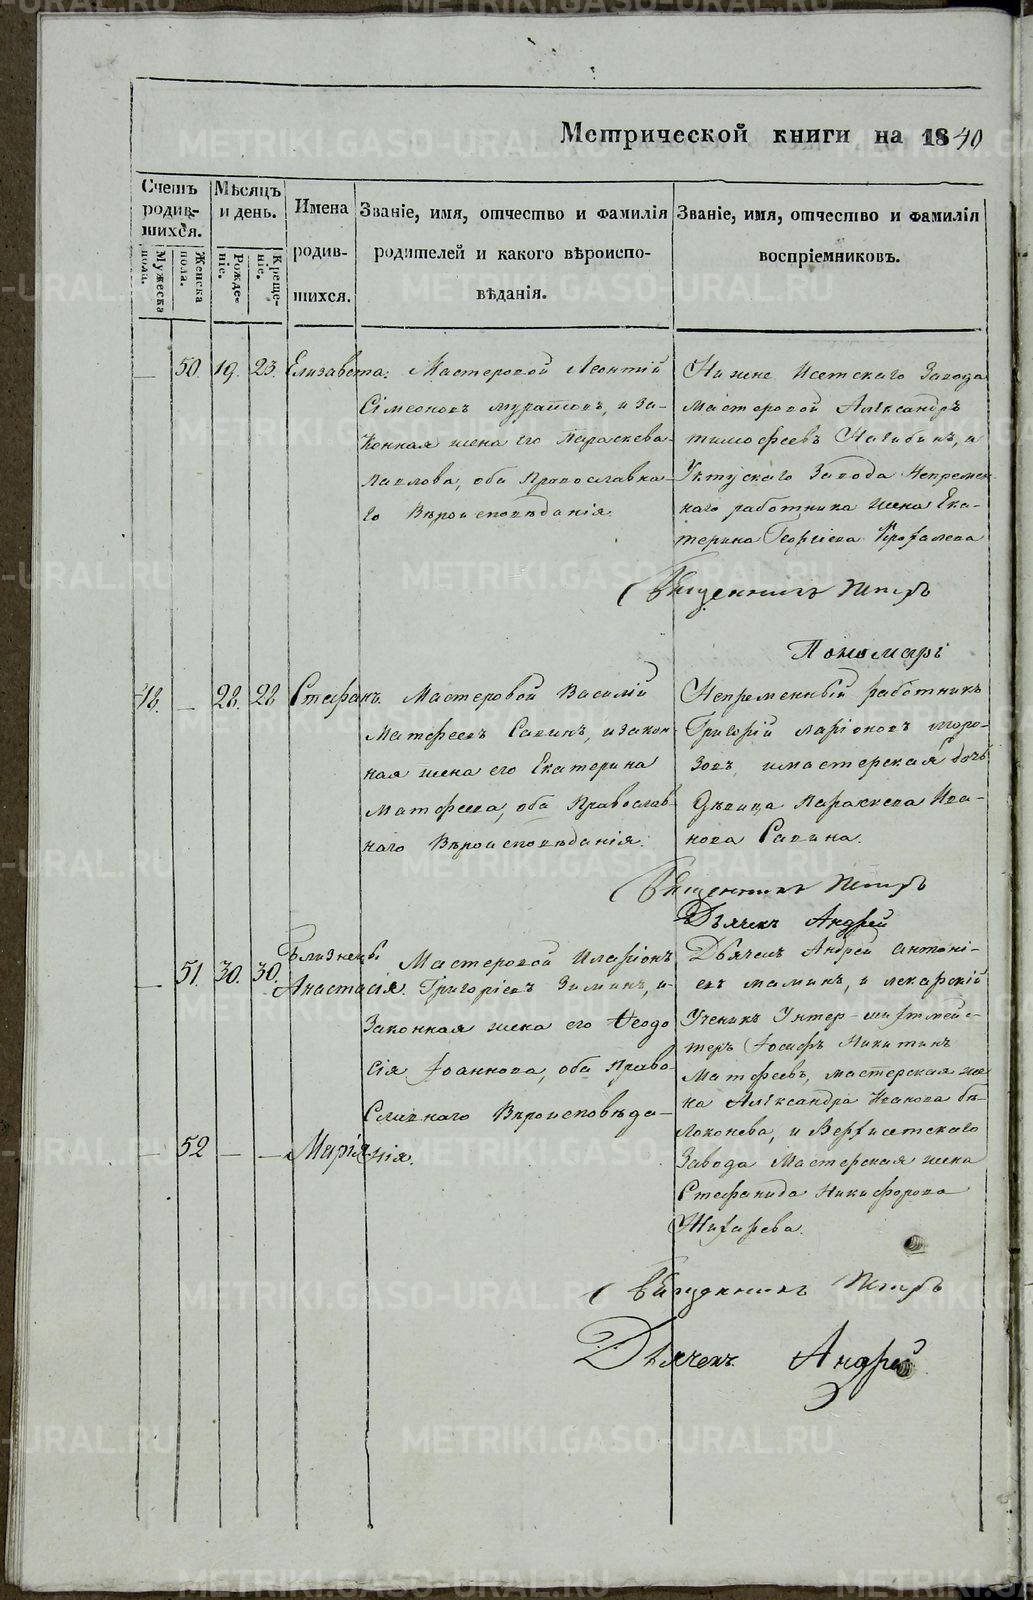 Метрической книги на 1840
Счетъ родив-шихся.
Мужеска пола.
Женска пола.
Мѣсяцъ и день.
Рожде-ніе.
Креще-ніе.
Имена
родив-
шихся.
Званіе, имя, отчество и фамилія
родителей и какого вѣроиспо-
вѣданія.
Званіе, имя, отчество и фамилія
воспріемниковъ.
— 50. 19. 23. Елизавета.
Мастеровой Леонтій
Сімеоновъ Муратовъ, и за-
конная жена его Параскева
Павлова, оба Православна-
го Вѣроисповѣданія.
Нижне Исетскаго Завода
Мастеровой Александръ
Тимофеевъ Нагибинъ, и
Уктускаго Завода Непремен-
наго работника жена Ека-
терина Георгіева
Священникъ Петръ
Пономарь
48. — 28. 28 Стефанъ.
Мастеровой Василій
Матфеевъ Савинъ, и закон-
ная жена его Екатерина
Матфеева, оба Православ-
наго Вѣроисповѣданія.
Непременный работникъ
Григорій Ларіоновъ Моро-
зовъ, и мастерская дочь
Девица Параскева Ива-
нова Савина.
Священникъ Петръ
Дьячекъ Андрей
Близнецы
— 51. 30. 30. Анастасія.
Мастеровой Иларіонъ
Григоріевъ Зиминъ, и
Законная жена его Ѳеодо
сія Іоаннова, оба Право
славнаго Вѣроисповѣда-
нія.
— 52 — — Марія
Дьячекъ Андрей Антоні-
евъ Маминъ, и лекарскій
Ученикъ Унтер-шихтмейс-
теръ Іосифъ Никитинъ
Матфеевъ, мастерская же
на Александра Иванова Бѣ-
локонева, и Верхисетскаго
Завода Мастерская жена
Стефанида Никифорова
Жихарева.
Священникъ Петръ
Дьячекъ Андрей
METRIKI.GASO-URAL.RU